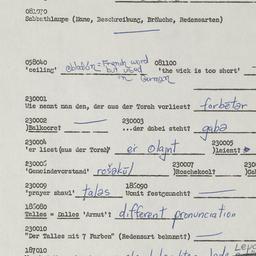 081070
Sabbathlampe (Name, Beschreibung, Bräuche, Redensarten)
058040 081100
'ceiling' = French word but used in German 'the wick is too short'
230001
Wie nennt man den, der aus der Torah vorliest? forbetər
230002 230003
)Balkore? ...der dabei steht? gabə
230004 230005
'er liest (aus der Torah)' er )laient?
230006 230007
'Gemeindevorstand' )Roschekool?
230009 184090
'prayer shawl' tales Womit festgemacht?
184080
Talles = Dalles 'Armut'? different pronunciation
230010
"Der Talles mit 7 Farben" (Redensart bekannt?)
187010